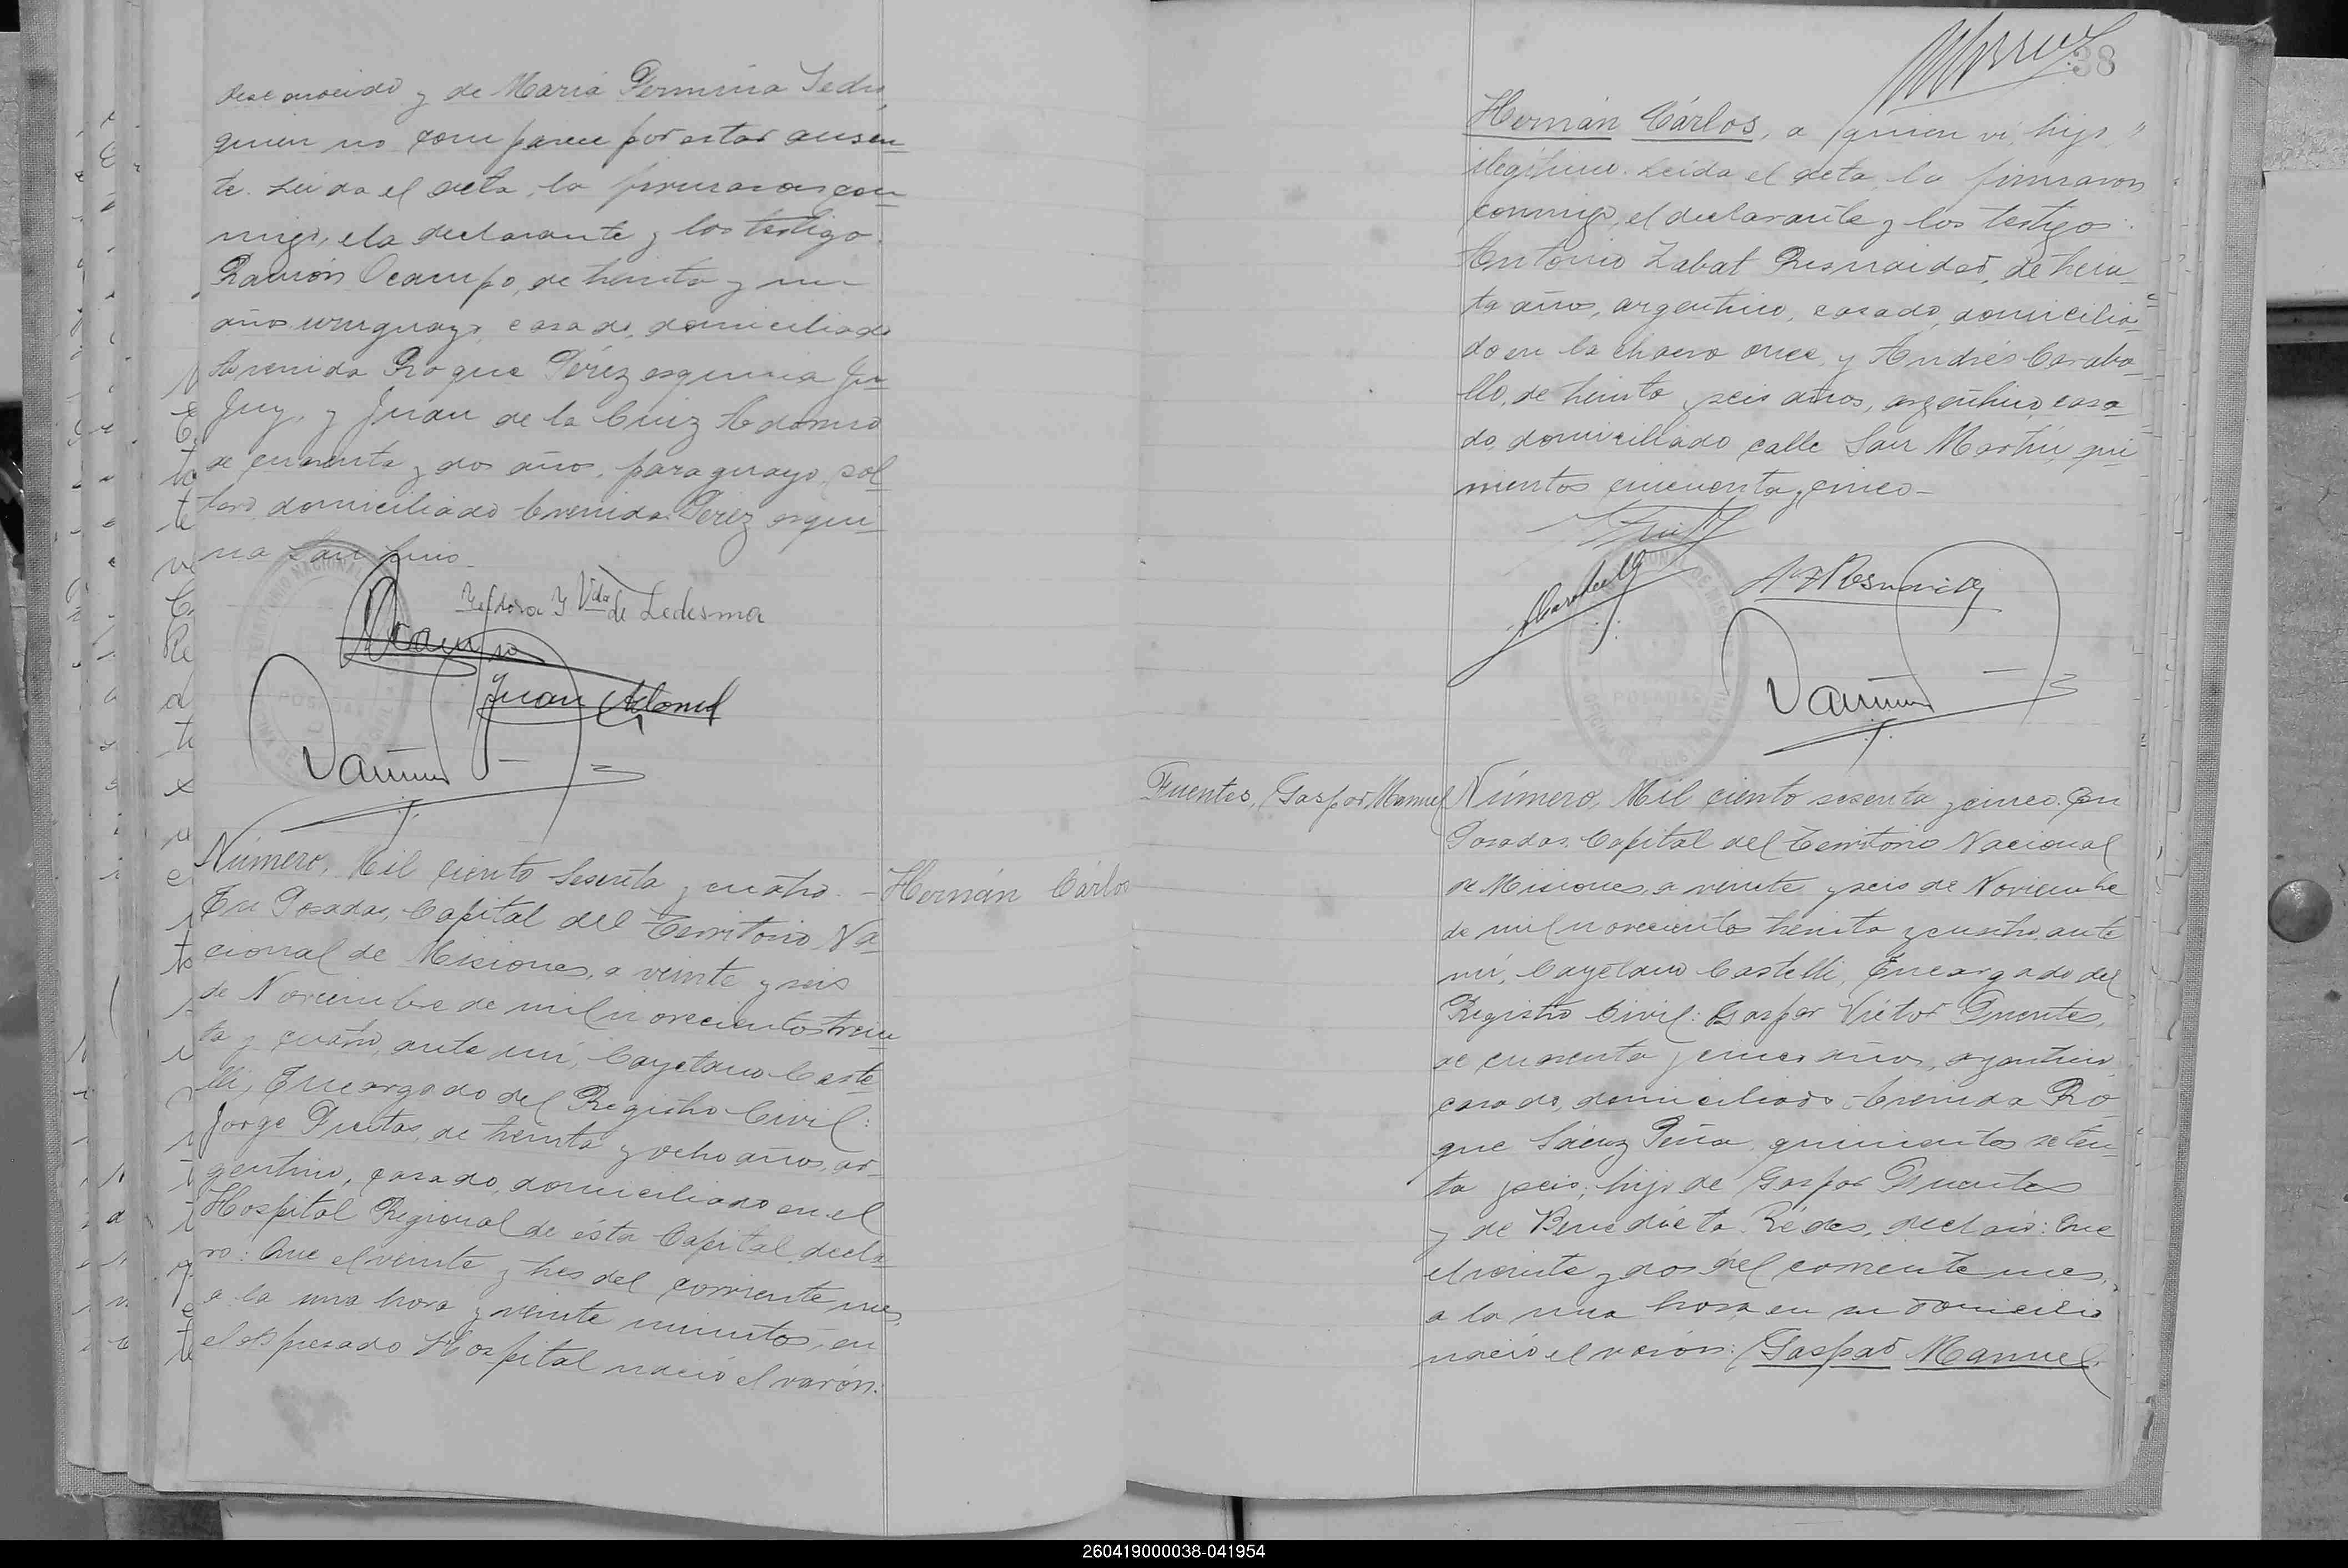 desconocido y de María Fermina Ledes,
quien no comparece por estar ausen-
te. Leida el acta, la firmaron con-
migo, ela declarante y los testigo
Ramón Ocampo, de treinta y un
años uruguayo, casado, domiciliado
Avenida Roque Pérez esquina Ju-
juy, y Juan de la Cruz Adorno
de cuarenta y dos años, paraguayo, sol-
tero domiciliado Avenida Pérez esqui-
na San Luis
Vda de Ledesma
Ocampo
Juan Adorno
Número, Mil ciento sesenta y cuatro. - Hernán Cárlos
En Posadas, Capital del Territorio Na-
cional de Misiones, a veinte y seis
de Noviembre de mil novecientos trein-
ta y cuatro, ante mi, Cayetano Caste-
lli, Encargado del Registro Civil:
Jorge Fretes, de treinta y ocho años, ar-
gentino, casado, domiciliado en el
Hospital Regional de ésta Capital, decla-
ró: Que el veinte y tres del corriente mes
a la una hora y veinte minutos, en
el espresado Hospital nació el varón:
38
Hernán Cárlos, a quien vi, hijo
ilegítimo. Leída el acta, la firmaron
conmigo, el declarante y los testigos:
Antonio Zabat Resnaider, de trein-
ta años, argentino, casado, domicilia-
do en la chacra once, y Andrés Caraba-
llo, de treinta y seis años, argentino, casa-
do, domiciliado calle San Martín, qui-
nientos cincuenta y cinco-
POSADAS
Fuentes, Gaspar Manuel Número, Mil ciento sesenta y cinco. En
Posadas, Capital del Territorio Nacional
de Misiones, a veinte y seis de Noviembre
de mil novecientos treinta y cuatro, ante
mí, Cayetano Castelli, Encargado del
Registro Civil: Gaspar Victor Fuentes,
de cuarenta y cinco años, argentino,
casado, domiciliado Avenida Ro-
que Sáenz Peña, quinientos seten-
ta y seis; hijo de Gaspar Fuentes
y de Benedicta Rédes, declaró: Que
el veinte y dos del corriente mes,
a la una hora, en su domicilio
nació el varón: Gaspar Manuel,
260419000038-041954